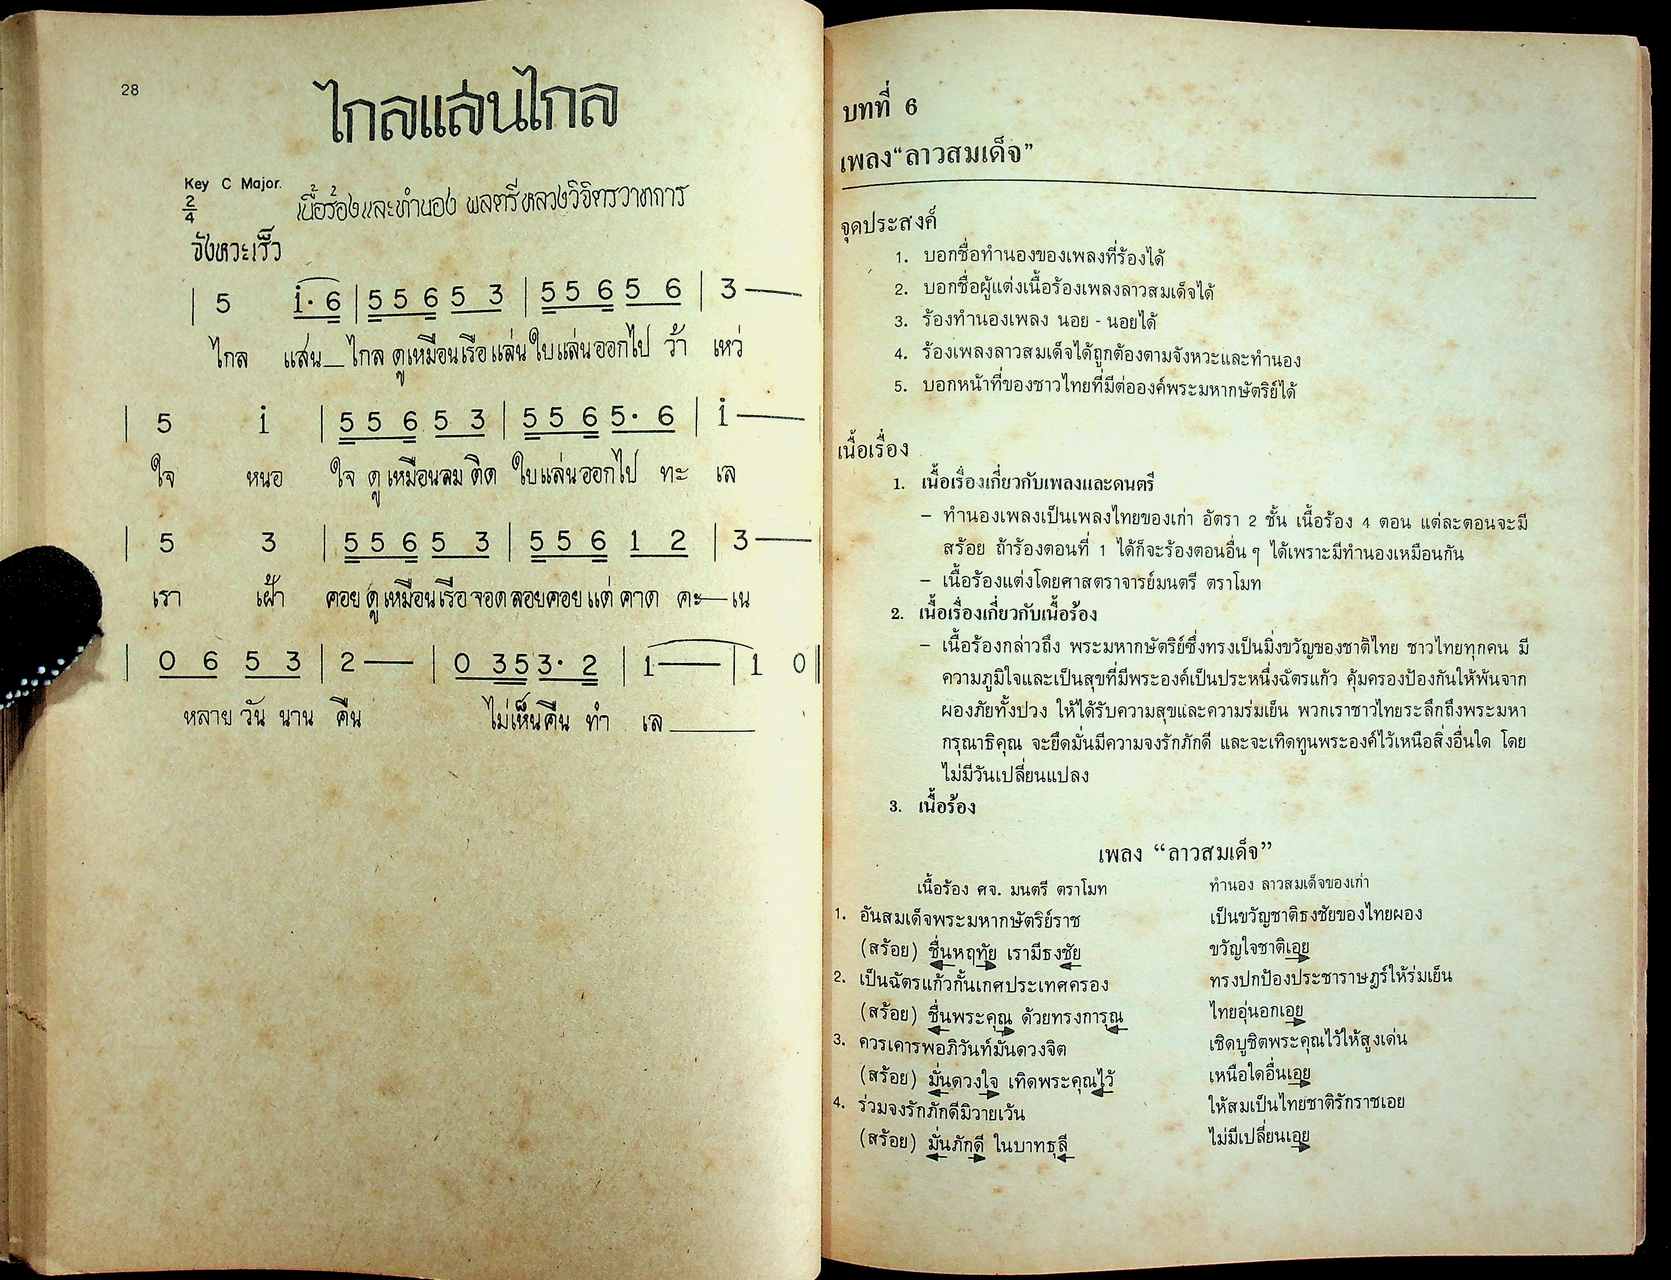 28
ไกลแสนไกล
Key C Major.
2/4
เนื้อร้องและทำนอง พลตรีหลวงวิจิตรวาทการ
จังหวะเร็ว
| 5 i· 6 | 5 5 6 5 3 | 5 5 6 5 6 | 3 —
ไกล แสน_ไกล ดูเหมือนเรือแล่นใบแล่นออกไป ว้า เหว่
| 5 i | 5 5 6 5 3 | 5 5 6 5· 6 | i —
ใจ หนอ ใจ ดูเหมือนลม ติด ใบแล่นออกไป ทะ เล
| 5 3 | 5 5 6 5 3 | 5 5 6 1 2 | 3 —
เรา เฝ้า คอยดูเหมือนเรือจอดลอยคอยแต่คาด คะ—เน
| 0 6 5 3 | 2 — | 0 3 5 3· 2 | 1 — | 1 0 ||
หลาย วัน นาน คืน ไม่เห็นคืน ทำ เล ____
บทที่ 6
เพลง“ลาวสมเด็จ”
จุดประสงค์
1. บอกชื่อทำนองของเพลงที่ร้องได้
2. บอกชื่อผู้แต่งเนื้อร้องเพลงลาวสมเด็จได้
3. ร้องทำนองเพลง นอย - นอยได้
4. ร้องเพลงลาวสมเด็จได้ถูกต้องตามจังหวะและทำนอง
5. บอกหน้าที่ของชาวไทยที่มีต่อองค์พระมหากษัตริย์ได้
เนื้อเรื่อง
1. เนื้อเรื่องเกี่ยวกับเพลงและดนตรี
– ทำนองเพลงเป็นเพลงไทยของเก่า อัตรา 2 ชั้น เนื้อร้อง 4 ตอน แต่ละตอนจะมี
สร้อย ถ้าร้องตอนที่ 1 ได้ก็จะร้องตอนอื่น ๆ ได้เพราะมีทำนองเหมือนกัน
– เนื้อร้องแต่งโดยศาสตราจารย์มนตรี ตราโมท
2. เนื้อเรื่องเกี่ยวกับเนื้อร้อง
– เนื้อร้องกล่าวถึง พระมหากษัตริย์ซึ่งทรงเป็นมิ่งขวัญของชาติไทย ชาวไทยทุกคน มี
ความภูมิใจและเป็นสุขที่มีพระองค์เป็นประหนึ่งฉัตรแก้ว คุ้มครองป้องกันให้พ้นจาก
ผองภัยทั้งปวง ให้ได้รับความสุขและความร่มเย็น พวกเราชาวไทยระลึกถึงพระมหา
กรุณาธิคุณ จะยึดมั่นมีความจงรักภักดี และจะเทิดทูนพระองค์ไว้เหนือสิ่งอื่นใด โดย
ไม่มีวันเปลี่ยนแปลง
3. เนื้อร้อง
เพลง “ลาวสมเด็จ”
เนื้อร้อง ศจ. มนตรี ตราโมท ทำนอง ลาวสมเด็จของเก่า
1. อันสมเด็จพระมหากษัตริย์ราช เป็นขวัญชาติธงชัยของไทยผอง
(สร้อย) ชื่นหฤทัย เรามีธงชัย ขวัญใจชาติเอย
2. เป็นฉัตรแก้วกั้นเกศประเทศครอง ทรงปกป้องประชาราษฎร์ให้ร่มเย็น
(สร้อย) ชื่นพระคุณ ด้วยทรงการุณ ไทยอุ่นอกเอย
3. ควรเคารพอภิวันท์มั่นดวงจิต เชิดบูชิตพระคุณไว้ให้สูงเด่น
(สร้อย) มั่นดวงใจ เทิดพระคุณไว้ เหนือใดอื่นเอย
4. ร่วมจงรักภักดีมิวายเว้น ให้สมเป็นไทยชาติรักราชเอย
(สร้อย) มั่นภักดี ในบาทธุลี ไม่มีเปลี่ยนเอย